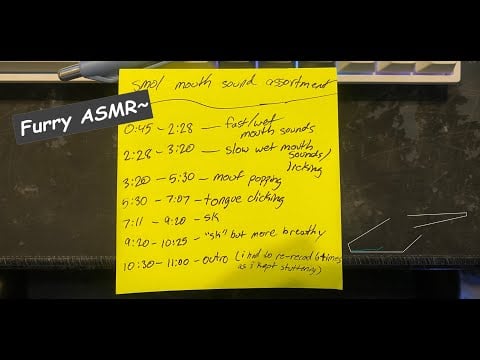 smol mouth sound assortment
Furry ASMR~
0:45 - 2:28 — fast/wet
mouth sounds
2:28 - 3:20 — slow wet mouth
sounds/
licking
3:20 - 5:30 — mouf popping
5:30 - 7:07 - tongue clicking
7:11 - 9:20 - sk
9:20 - 10:25 - "sk" but more breathy
10:30 - 11:00 - outro (i had to re-record 6 times
as i kept stuttering)